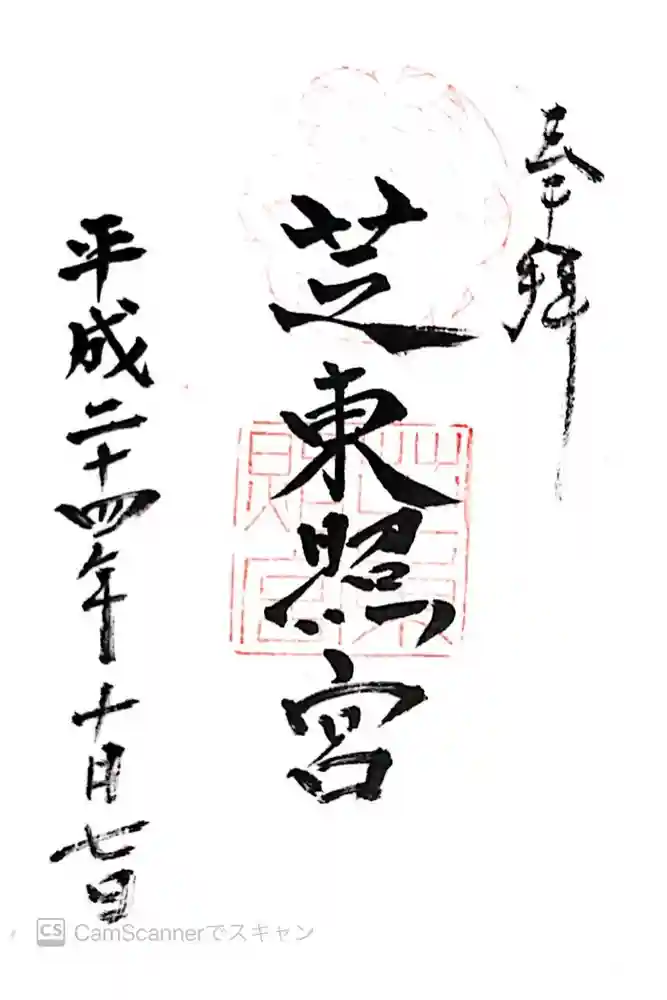 奉拝
芝東照宮
平成二十四年十月七日
CS CamScannerでスキャン